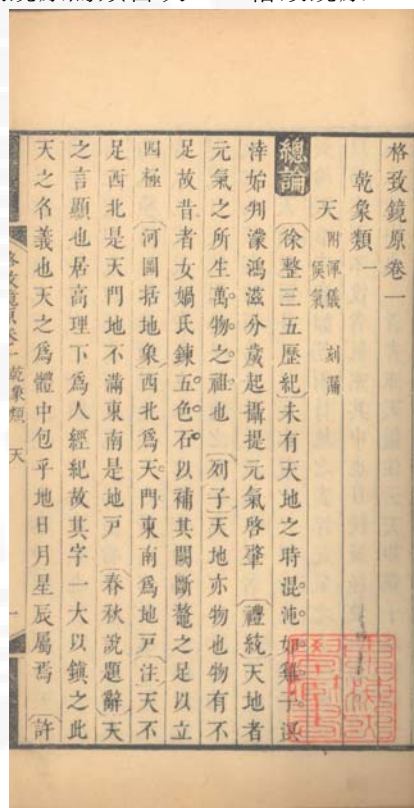 格致鏡原卷一
乾象類一
天 附渾儀 刻漏 候氣
總論 〔徐整三五歷紀〕未有天地之時混沌如雞子溟
涬始判濛鴻滋分歲起攝提元氣啓肇 〔禮統〕天地者
元氣之所生萬物之祖也 〔列子〕天地亦物也物有不
足故昔者女媧氏鍊五色石以補其闕斷鼇之足以立
四極 〔河圖括地象〕西北爲天門東南爲地戸〔注〕天不
足西北是天門地不滿東南是地戸 〔春秋說題辭〕天
之言顯也居高理下爲人經紀故其字一大以鎮之此
天之名義也天之爲體中包乎地日月星辰屬焉 〔許
格致鏡原卷一 乾象類 天 一